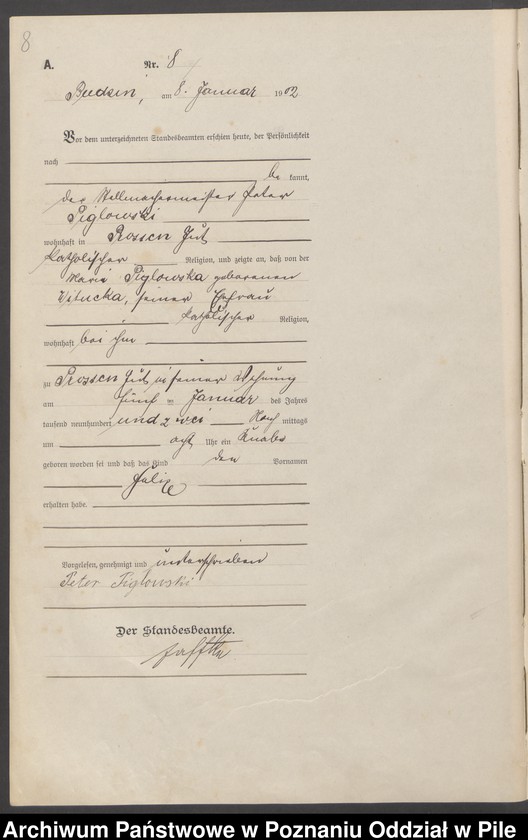 8
A. Nr. 8
Budsin, am 8. Januar 1902
Vor dem unterzeichneten Standesbeamten erschien heute, der Persönlichkeit
nach
be kannt,
der Stellmachermeister Peter
Piglowski
wohnhaft in Prossen Gut
katholischer Religion, und zeigte an, daß von der
Marie Piglowska geborenen
Witucka, seiner Ehefrau
katholischer Religion,
wohnhaft bei ihm
zu Prossen Gut in seiner Wohnung
am fünf ten Januar des Jahres
tausend neunhundert und zwei Nach mittags
um acht Uhr ein Knabe
geboren worden sei und daß das Kind den Vornamen
Felix
erhalten habe.
Vorgelesen, genehmigt und unterschrieben
Peter Piglowski
Der Standesbeamte.
Archiwum Państwowe w Poznaniu Oddział w Pile